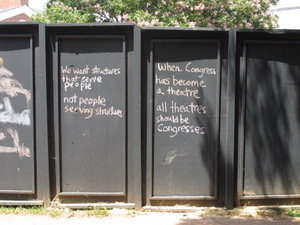 We want structures
that serve
people
not people
serving structures
When Congress
has become
a theatre
all theatres
should be
Congresses